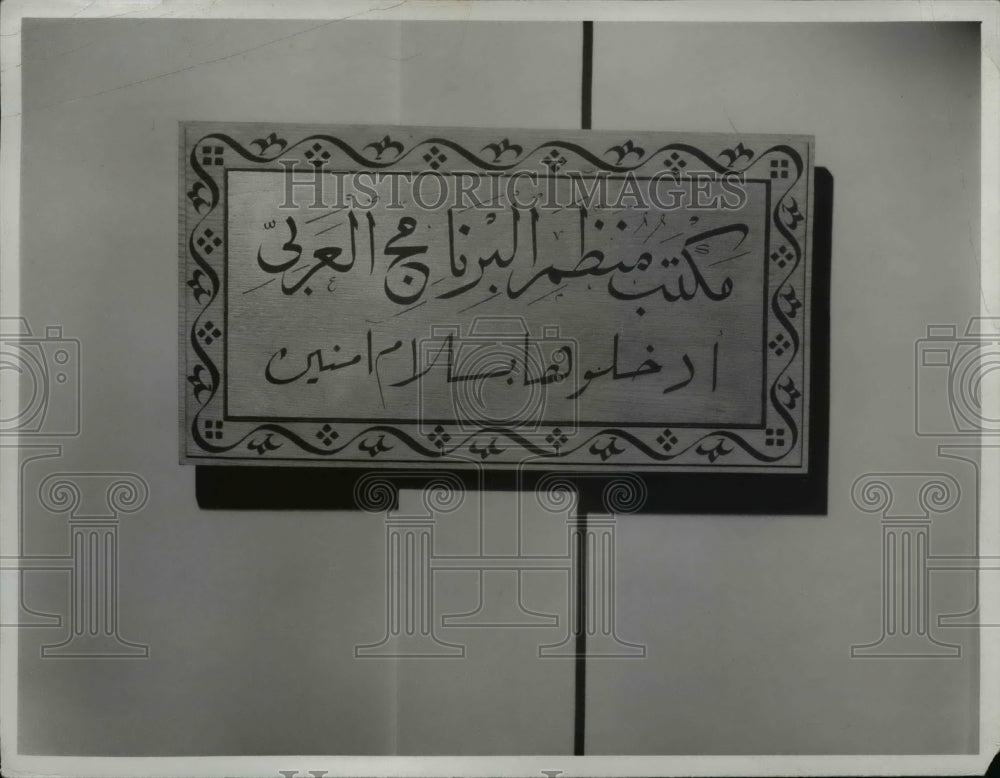 HISTORIC IMAGES
مكتب منظم البرنامج العربي
أدخلوها بسلام امنين